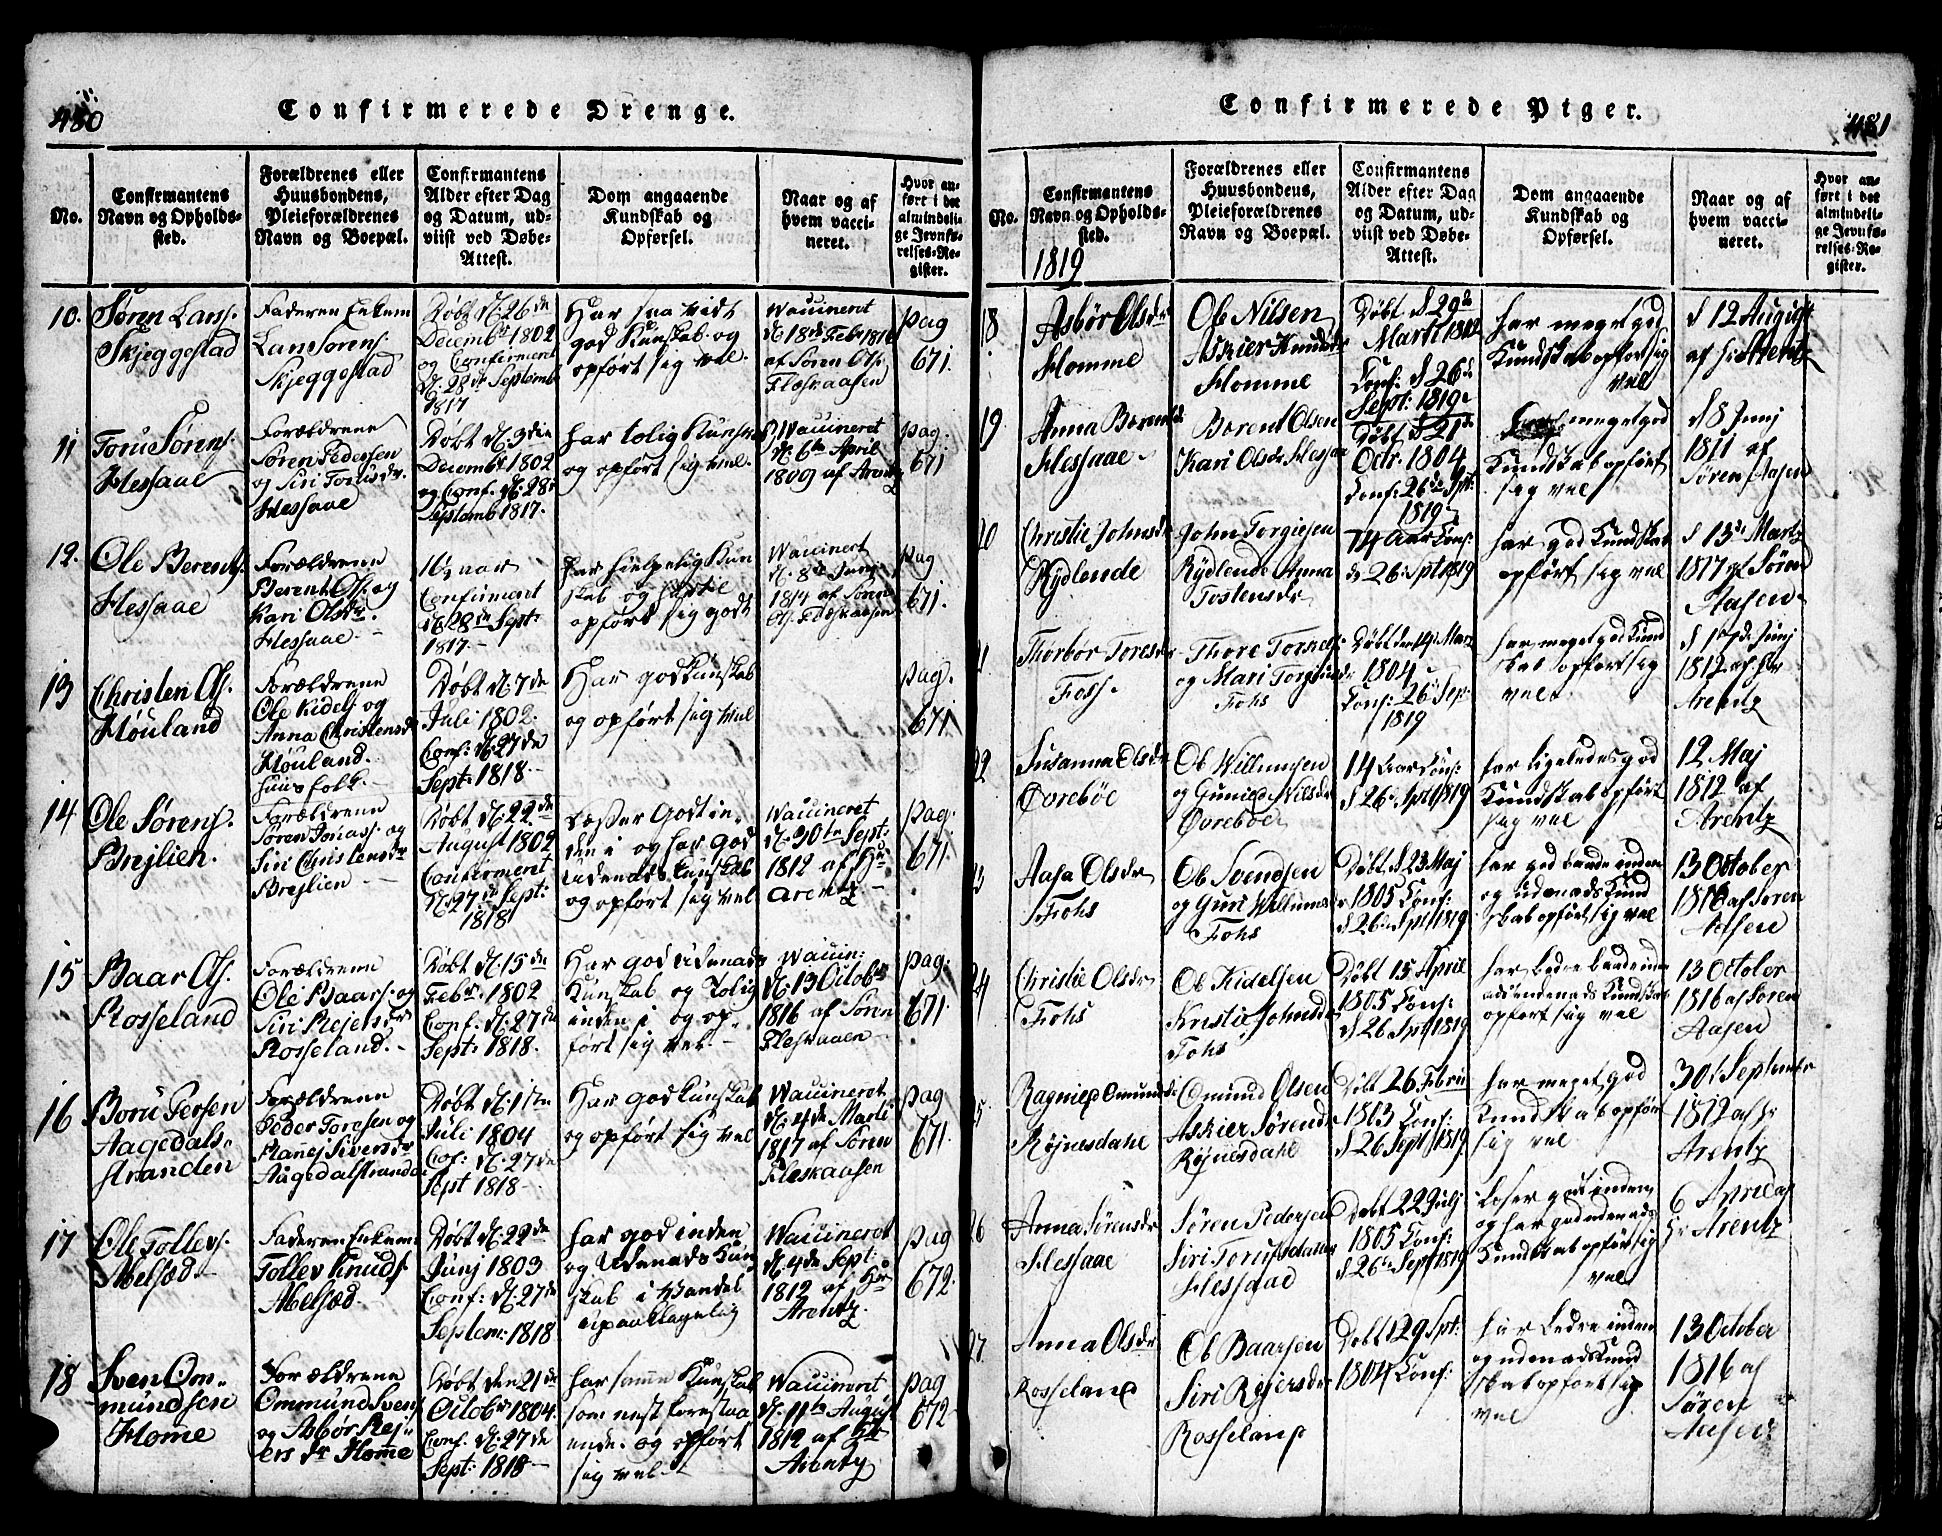 480
Confirmerede Drenge.
No.
Confirmantens
Navn og Opholds-
sted.
Forældrenes eller
Huusbondens,
Pleieforældrenes
Navn og Boepæl.
Confirmantens
Alder efter Dag
og Datum, ud-
viist ved Døbe-
Attest.
Dom angaaende
Kundskab og
Opførsel.
Naar og af
hvem vacci-
neret.
Hvor an-
ført i det
almindeli-
ge Jevnfø-
relses-Re-
gister.
10.
Søren Lars.
Skjeggestad
Faderen Enkem
Lars Sørens.
Skjeggestad
Døbt d. 26de
Decembr 1802
og Confirmeret
d. 28de Septemb
1817
Har saa vidt
god Kunskab og
opført sig vel.
Waccineret
d. 18de Febr 1816
af Søren Ols.
Fleskaasen
pag
671.
11
Torius Sørens.
Flessaae
Forældrene
Søren Pedersen
og Siri Toriusdr.
Flessaae
Døbt d. 3den
Decembr 1802
og Conf. d. 28de
Septemb 1817.
har tolig Kunsk
og opført sig vel.
Waccineret
d. 6te April
1809 af Arentz
pag.
671
12.
Ole Berents.
Flessaae
Forældrene
Berent Ols. og
Kari Olsdr.
Flessaae.
16½ aar
Confirmeret
d. 28de Sept:
1817.
har hielpelig Kun
skab og
opført sig godt
Waccinert
1814 af Søren
Ols. Fleskaasen
pag
671.
13
Christen Ols.
Høuland
Forældrene
Ole Kidels. og
Anna Christensdr
Høuland.
huusfolk.
Døbt d. 7de
Juli 1802.
Conf: d. 27de
Sept: 1818
Har god Kunskab
og opført sig vel
pag.
671
14
Ole Sørens.
Brejlien.
Forældrene
Søren Jonass. og
Siri Christensdr
Brejlien
Døbt d. 22de
August 1802
Confirmeret
d. 27de Sept:
1818
Læser godt in
den i og har god
udenads Kunskab
og opført sig vel
Waccineret
d. 30te Sept:
1812 af Hr.
Arentz
pag.
671.
15
Baar Ols.
Rosseland
Forældrene
Ole Baars. og
Siri Rejersdr
Rosseland.
Døbt d. 15de
Febr. 1802
Conf: d. 27de
Sept: 1818.
Har god udenads
Kunskab og Tolig
inden i og op-
ført sig vel.
Waccin:
d. 13 Octobr
1816 af Søren
Fleskaaen
pag:
671.
16
Boru Persen
Aagedals-
stranden
Forældrene
Peder Toresen og
Rannej Siversdr
Aagedalstranden
Døbt d. 17de
Juli 1804
Conf: d. 27de
Sept 1818
Har god Kunskab
og opført sig vel
Waccineret
d. 4de Marti
1817 af Søren
Fleskaasen
pag
671.
17
Ole Tollevs.
Abelsæd
Faderen Enkem
Tollev Knuds.
Abelsæd
Døbt d. 22de
Junj 1803
Conf: d. 27de
Septem: 1818
har god inden
og Udenads Kun
skab i Wandel
upaaklagelig
Waccineret
d. 4de Sept:
1812 af Hr
Arentz
pag
672.
18
Sven Om-
mundsen
Home
Forældrene
Ommund Svens
og Asbør Rej-
ers dr Home
Døbt den 21de
Octobr 1804.
Conf. d. 27de
Sept: 1818
har samme Kunskab
som nest forestaa
ende. og opført
sig vel.
Waccineret
d. 11te August
1812 af Hr
Arentz
pag
672
481
Confirmerede Piger.
No.
Confirmantens
Navn og Opholds-
sted.
1819
Forældrenes eller
Huusbondens,
Pleieforældrenes
Navn og Boepæl.
Confirmantens
Alder efter Dag
og Datum, ud-
viist ved Døbe-
Attest.
Dom angaaende
Kundskab og
Opførsel.
Naar og af
hvem vacci-
neret.
Hvor an-
ført i det
almindeli-
ge Jevnfø-
relses-Re-
gister.
18
Asbør Olsdr
Homme
Ole Nilsen
Askier Knudsdr
Homme
Døbt d 29de
Marti
Conf: d 26de
Sept: 1819
har meget god
Kundskab opfør sig
vel
d 12 August
af Hr Arentz
19
Anna Berentsdr
Flessaae
Berent Olsen
Kari Olsdr Flessaae
Døbt d 21de
Octr. 1804
Conf: 26de Spt:
1819
meget god
Kundskab opført
sig vel
d 8 Junj
1811 af
Søren Aasen
20
Christie Johnsdr
Rydlende
John Torgiesen
Rydlende Anna
Tostensdr
14 Aar Conf:
d 26 Spt 1819
har god Kundskab
opført sig vel
d 13de Martz
1817 af Søren
Aasen
21
Thorbor Toresdr
Foss.
Thore Torsels
og Mari Torgiusdr
Fohs
Døbt den 14 Martz
1804
Conf: 26de Sep:
1819
har meget god Kund
skab opført sig
vel.
d 17de Junj
1812 af Hr
Arentz
22
Susanna Olsdr
Øvrebøe
Ole Willumsen
og Gunild Nilsdr
Øvrebøe
14 Aar Conf:
d 26de Spt 1819
har ligeledes god
Kundskab opført
sig vel
12 Maj
1812 af
Arentz
23
Aasa Olsdr
Fohs
Ole Svendsen
og Guri Willumsdr
Fohs
Døbt d 23 Maj
1805 Conf:
d 26de Spt 1819
har god baade inden
og udenads Kund
skab opført sig vel
13 October
1816 af Søren
Aasen
24
Christie Olsdr
Fohs
Ole Kidelsen
Kristie Johnsdr
Fohs
Døbt 15 April
1805 Conf:
d 26 Spt 1819
har bedre baade inden
opført sig vel
13 October
1816 af Søren
Aasen
25
Ragnild Omunds
Røjnesdahl
Omund Olsen
Askier Sørensdr
Røjnesdahl
Døbt 26 Febru
1803 Conf:
d 26 Sept 1819
har meget god
Kundskab opfør
sig vel
30te September
1812 af Hr
Arentz
26
Anna Sørensdr
Flessaae
Søren Pedersen
Siri Toriusdatter
Flessaae
Døbt 22 Julj
1805 Conf:
d 26de Sept 1819
Læser godt inden
og har god udenads
Kundskab opfør sig
vel
6 April af
Hr Arentz
27
Anna Olsdr
Rosseland
Ole Baarsen
Siri Rejersdr
Rosseland
Døbt 29 Spt:
1804 Conf:
har bedre inden
og udenads Kund
skab opført sig
vel
13 October
1816 af
Søren
Aasen